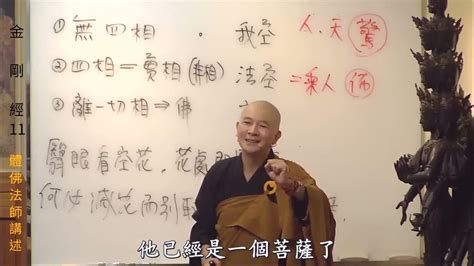 金剛經11
體佛法師講述
①無四相. 我空 人、天 驚
②四相=實相(非相) 法空=乘人 怖
③離一切相⇒佛
翳眼看空花,花處即
何必滅花而別取
他已經是一個菩薩了